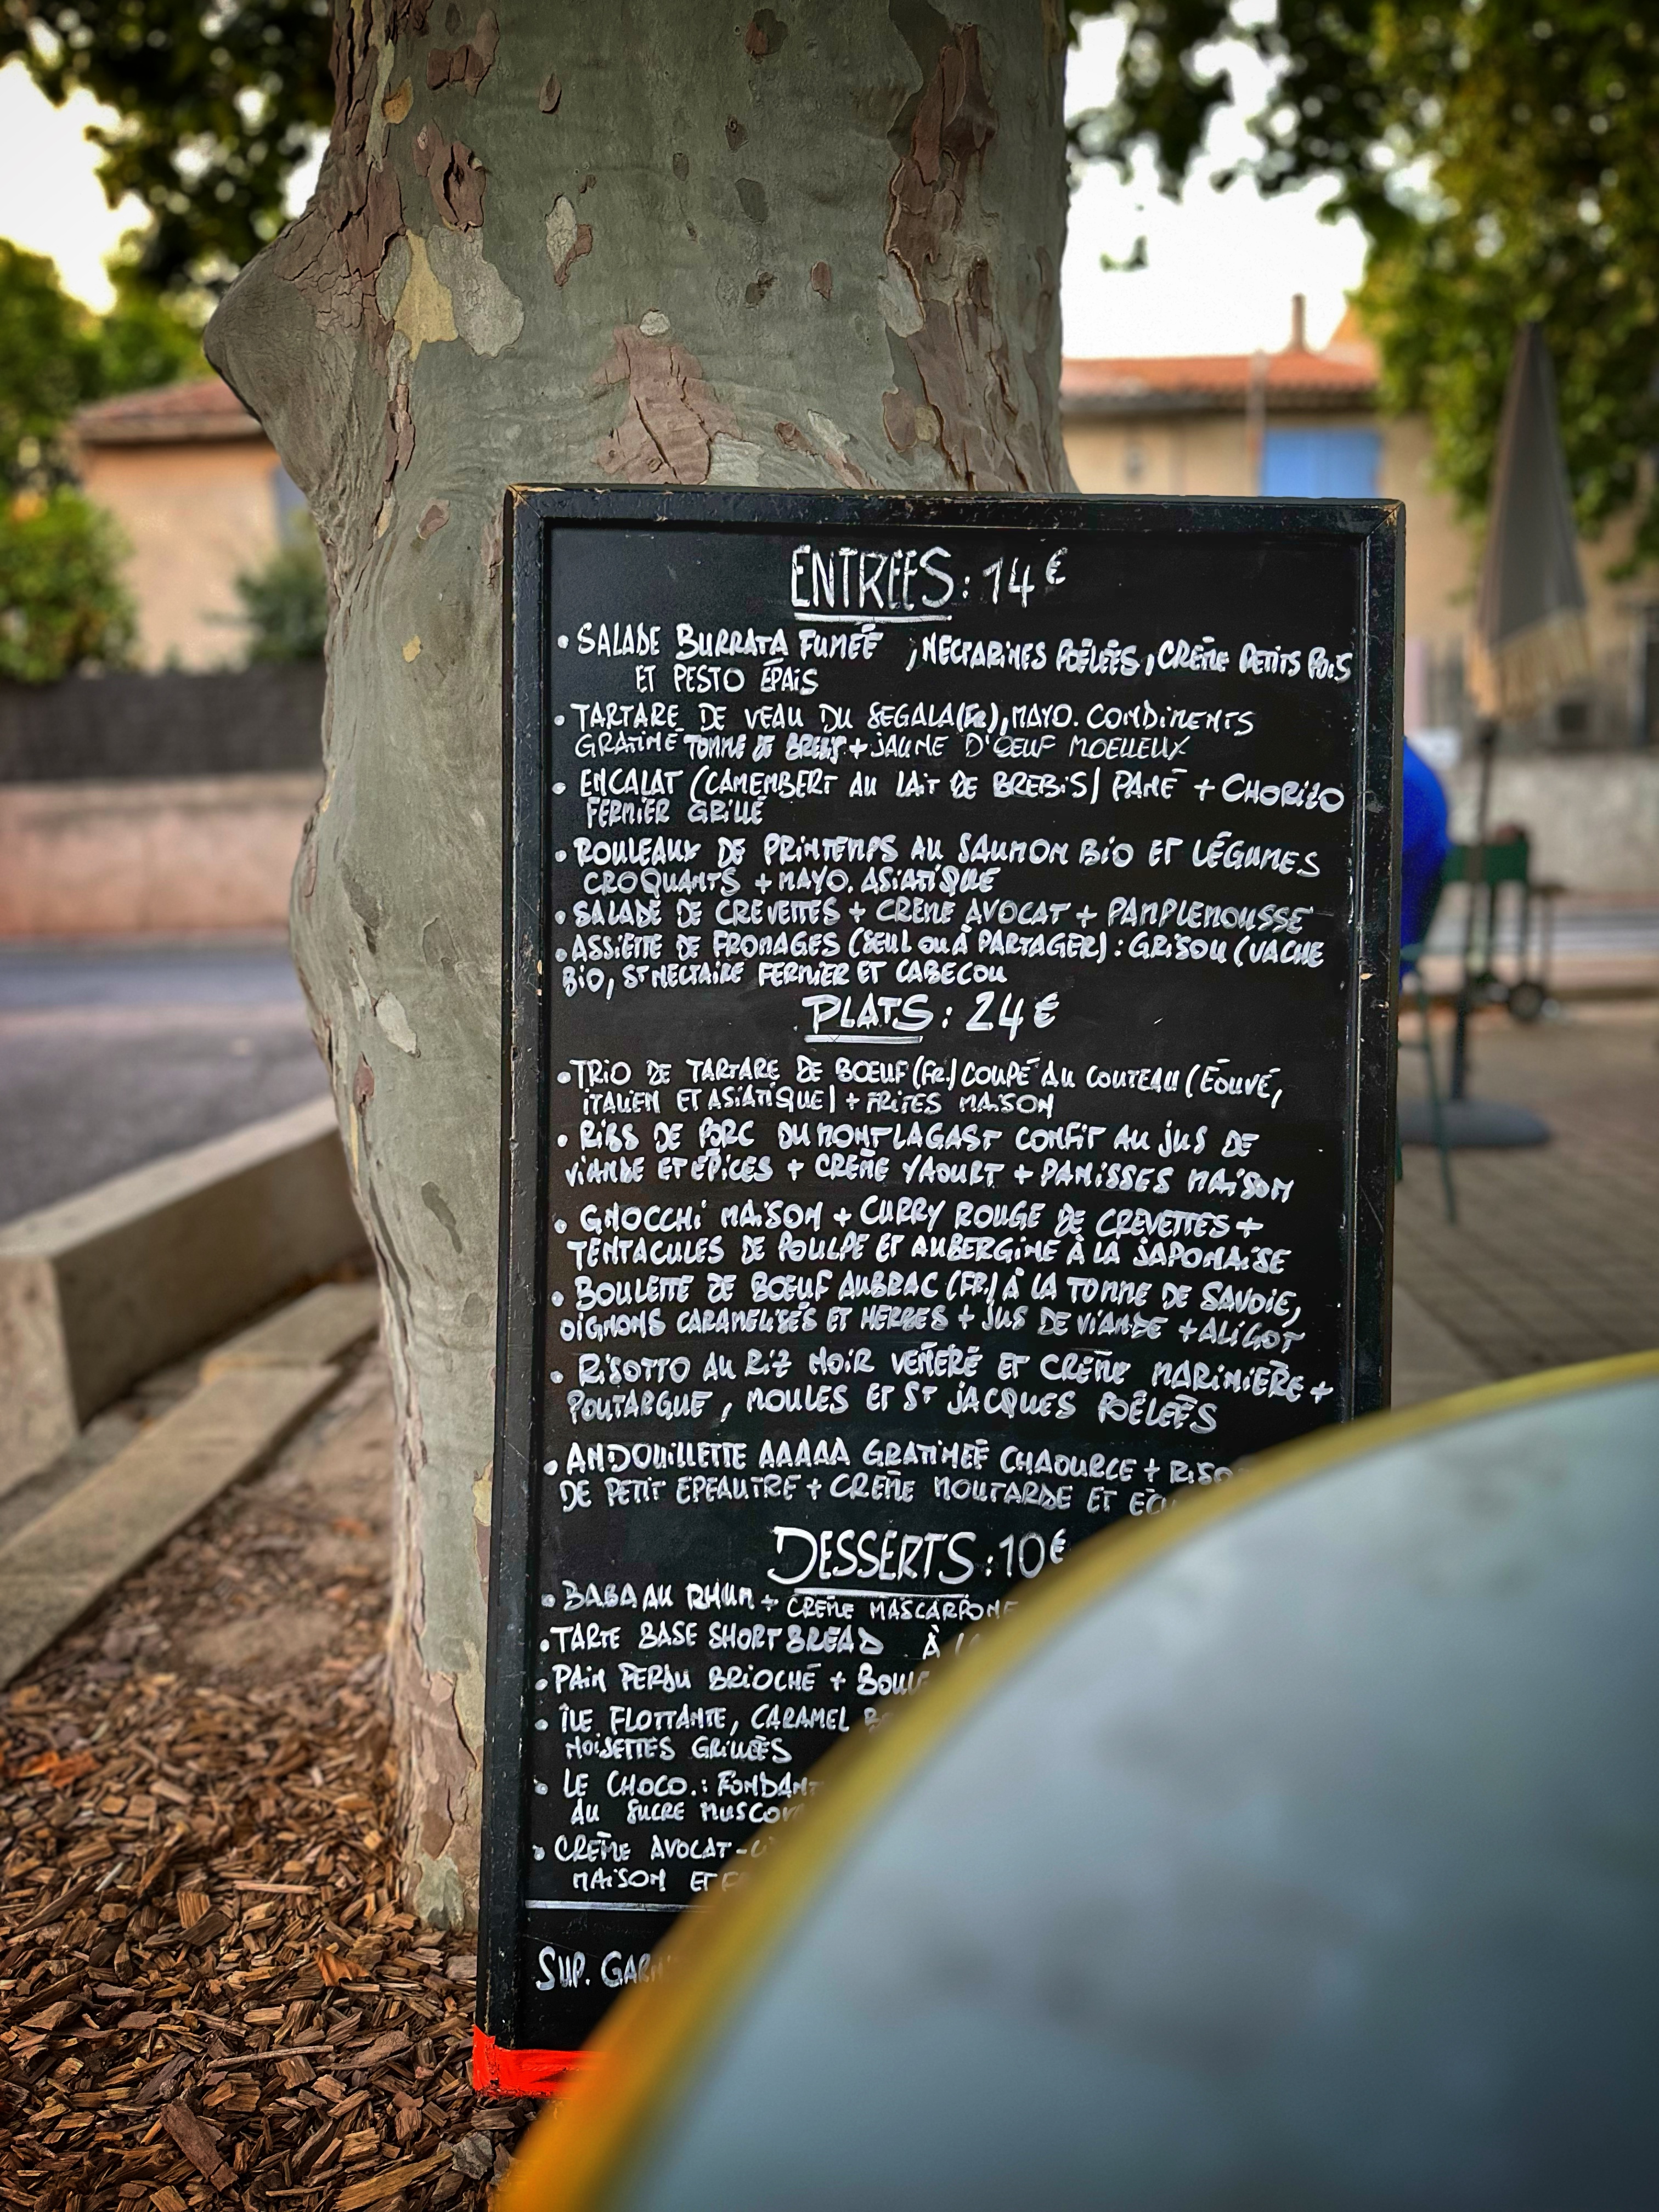 ENTREES : 14 €
• SALADE BURRATA FUMÉE , NECTARINES POÊLÉES , CRÈME PETITS POIS
ET PESTO ÉPAIS
• TARTARE DE VEAU DU SEGALA (FR), MAYO. CONDIMENTS
GRATINÉ TOMME DE BREBIS + JAUNE D'ŒUF MOELLEUX
• ENCALAT (CAMEMBERT AU LAIT DE BREBIS) PANÉ + CHORIZO
FERMIER GRILLÉ
• ROULEAUX DE PRINTEMPS AU SAUMON BIO ET LÉGUMES
CROQUANTS + MAYO. ASIATIQUE
• SALADE DE CREVETTES + CRÈME AVOCAT + PAMPLEMOUSSE
• ASSIETTE DE FROMAGES (SEUL OU À PARTAGER) : GRISOU (VACHE
BIO, ST NECTAIRE FERMIER ET CABECOU
PLATS : 24 €
• TRIO DE TARTARE DE BŒUF (FR.) COUPÉ AU COUTEAU (
ITALIEN ET ASIATIQUE) + FRITES MAISON
• RIBS DE PORC DU MONTLAGAST CONFIT AU JUS DE
VIANDE ET ÉPICES + CRÈME YAOURT + PANISSES MAISON
• GNOCCHI MAISON + CURRY ROUGE DE CREVETTES +
TENTACULES DE POULPE ET AUBERGINE À LA JAPONAISE
• BOULETTE DE BŒUF AUBRAC (FR.) À LA TOMME DE SAVOIE,
OIGNONS CARAMELISÉS ET HERBES + JUS DE VIANDE + ALIGOT
• RISOTTO AU RIZ NOIR VENERÉ ET CRÈME MARINIÈRE +
POUTARGUE , MOULES ET ST JACQUES POÊLÉES
• ANDOUILLETTE AAAAA GRATINÉE CHAOURCE + RISO
DE PETIT EPEAUTRE + CRÈME MOUTARDE ET
DESSERTS : 10 €
• BABA AU RHUM + CRÈME MASCARPONE
• TARTE BASE SHORTBREAD À
• PAIN PERDU BRIOCHÉ + BOULE
• ÎLE FLOTTANTE, CARAMEL
NOISETTES GRILLÉES
• LE CHOCO. : FONDANT
AU SUCRE MUSCOV
• CRÈME AVOCAT -
MAISON ET
SUP. GARN